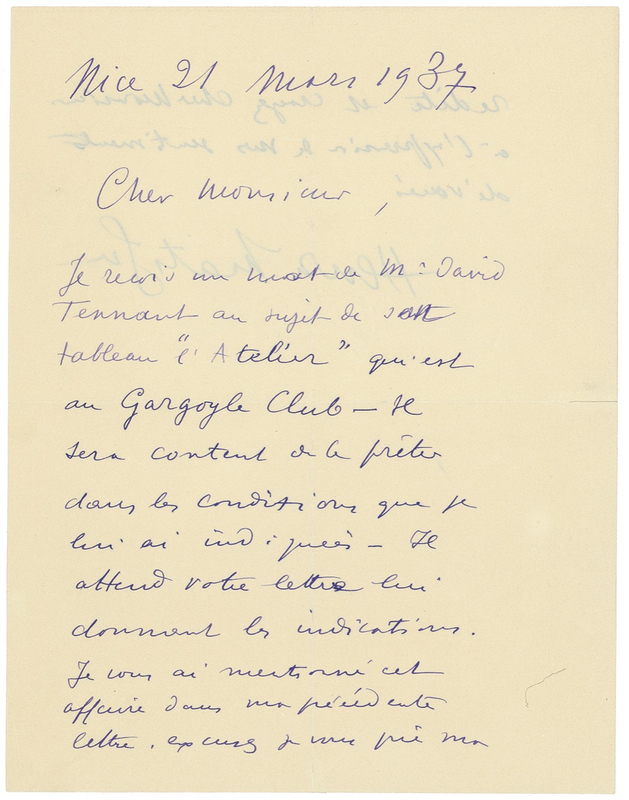 Nice 21 Mars 1937
Cher Monsieur,
Je reçois un mot de Mr David
Tennant au sujet de son
tableau "l'Atelier" qui est
au Gargoyle Club – Il
sera content de le prêter
dans les conditions que je
lui ai indiquées – Il
attend votre lettre lui
donnant les indications.
Je vous ai mentionné cet
affaire dans ma précédente
lettre. excusez je vous prie ma
redite et croyez cher Monsieur
à l'expression de mes sentiments
dévoués
Henri Matisse